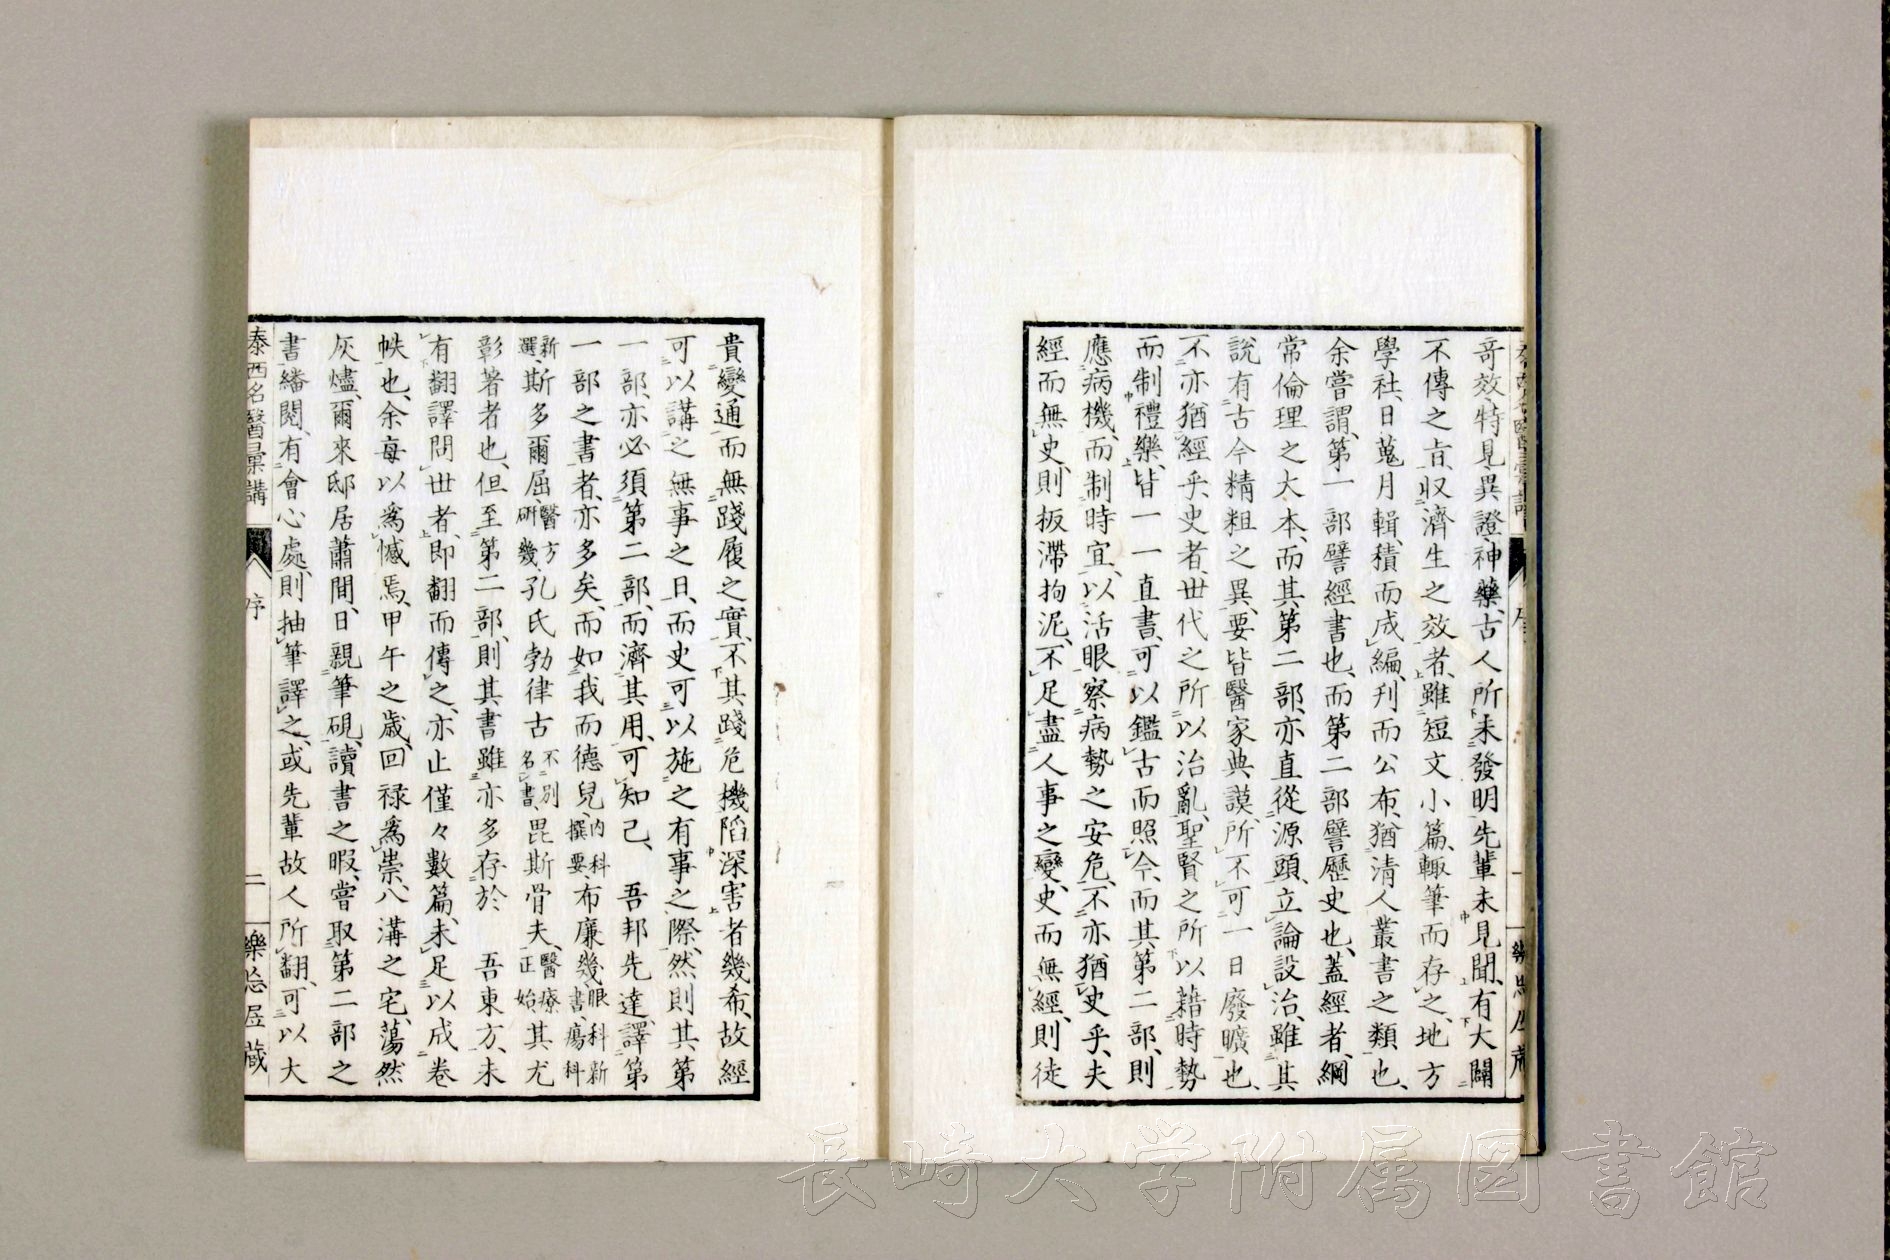 奇效、特見、異證、神藥、古人所未發明、先輩未見聞、有大關
不傳之旨、収濟生之效者、雖短文小篇、輙筆而存之、地方
學社、日蒐月輯、積而成編、刋而公布、猶清人叢書之類也、
余嘗謂、第一部譬經書也、而第二部譬歷史也、蓋經者、綱
常倫理之大本、而其第二部、亦直從源頭、立論設治、雖其
說有古今精粗之異、要皆醫家典謨、所不可一日廢曠也、
不亦猶經乎、史者、世代之所以治亂、聖賢之所以藉時勢
而制禮樂、皆一一直書、可以鑑古而照今、而其第二部、則
應病機、而制時宜、以活眼察病勢之安危、不亦猶史乎、夫
經而無史、則扳滯拘泥、不足盡人事之變、史而無經、則徒
貴變通而無踐履之實、不其踐危機陷深害者幾希、故經
可以講之無事之日、而史可以施之有事之際、然則其第
一部、亦必須第二部、而濟其用、可知己、 吾邦先達、譯第
一部之書者、亦多矣、而如我而德兒、內科撰要、布廉幾、眼科新書、瘍科
新選、斯多爾屈、醫方研幾、孔氏勃律古不別名書、毘斯骨夫、醫療正始、其尤
彰著者也、但至第二部、則其書雖亦多存於 吾東方、未
有翻譯問世者、即翻而傳之、亦止僅々數篇、未足以成卷
帙也、余每以爲憾焉、甲午之歲、回禄爲崇、八溝之宅、蕩然
灰燼、爾來邸居蕭間、日親筆硯、讀書之暇、嘗取第二部之
書繙閱、有會心處、則抽筆譯之、或先輩故人所翻、可以大
泰西名醫彙講
序
二
樂忩居藏
長崎大学附属図書館